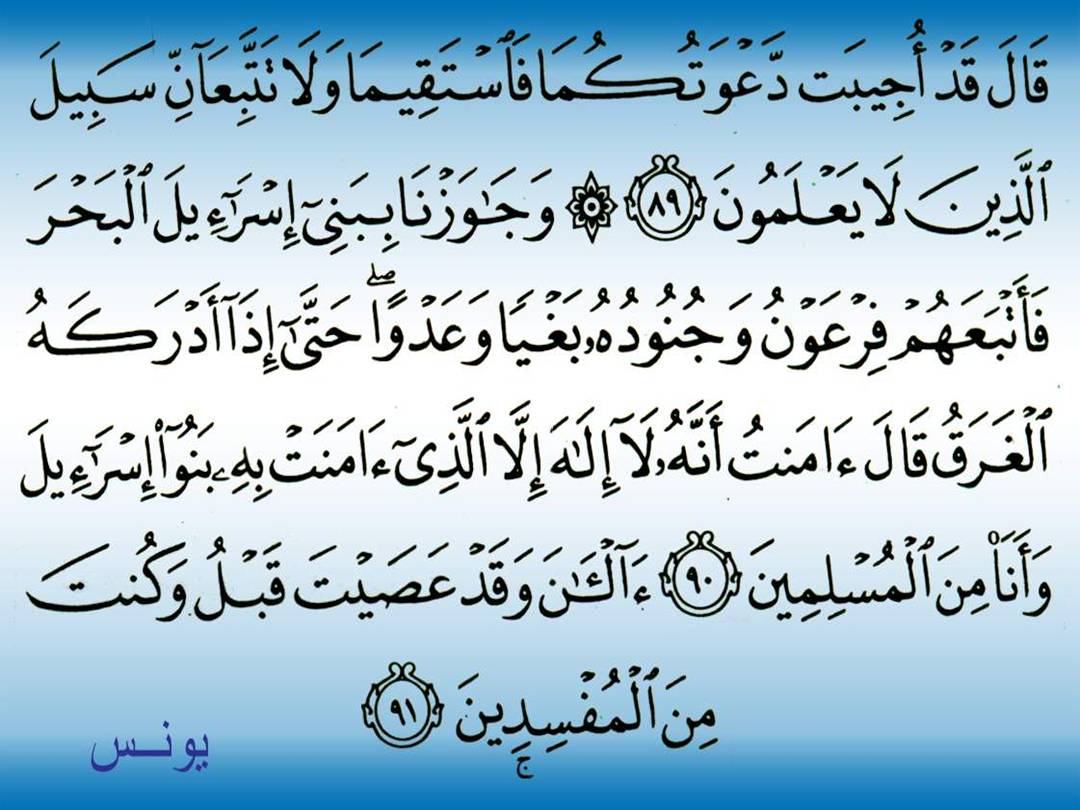 قَالَ قَدْ أُجِيبَت دَّعْوَتُكُمَا فَٱسْتَقِيمَا وَلَا تَتَّبِعَآنِّ سَبِيلَ
ٱلَّذِينَ لَا يَعْلَمُونَ ٨٩ ۞ وَجَٰوَزْنَا بِبَنِىٓ إِسْرَٰٓءِيلَ ٱلْبَحْرَ
فَأَتْبَعَهُمْ فِرْعَوْنُ وَجُنُودُهُۥ بَغْيًا وَعَدْوًا ۖ حَتَّىٰٓ إِذَآ أَدْرَكَهُ
ٱلْغَرَقُ قَالَ ءَامَنتُ أَنَّهُۥ لَآ إِلَٰهَ إِلَّا ٱلَّذِىٓ ءَامَنَتْ بِهِۦ بَنُوٓا۟ إِسْرَٰٓءِيلَ
وَأَنَا۠ مِنَ ٱلْمُسْلِمِينَ ٩٠ ءَآلْـَٰٔنَ وَقَدْ عَصَيْتَ قَبْلُ وَكُنتَ
مِنَ ٱلْمُفْسِدِينَ ٩١
ج
يونس